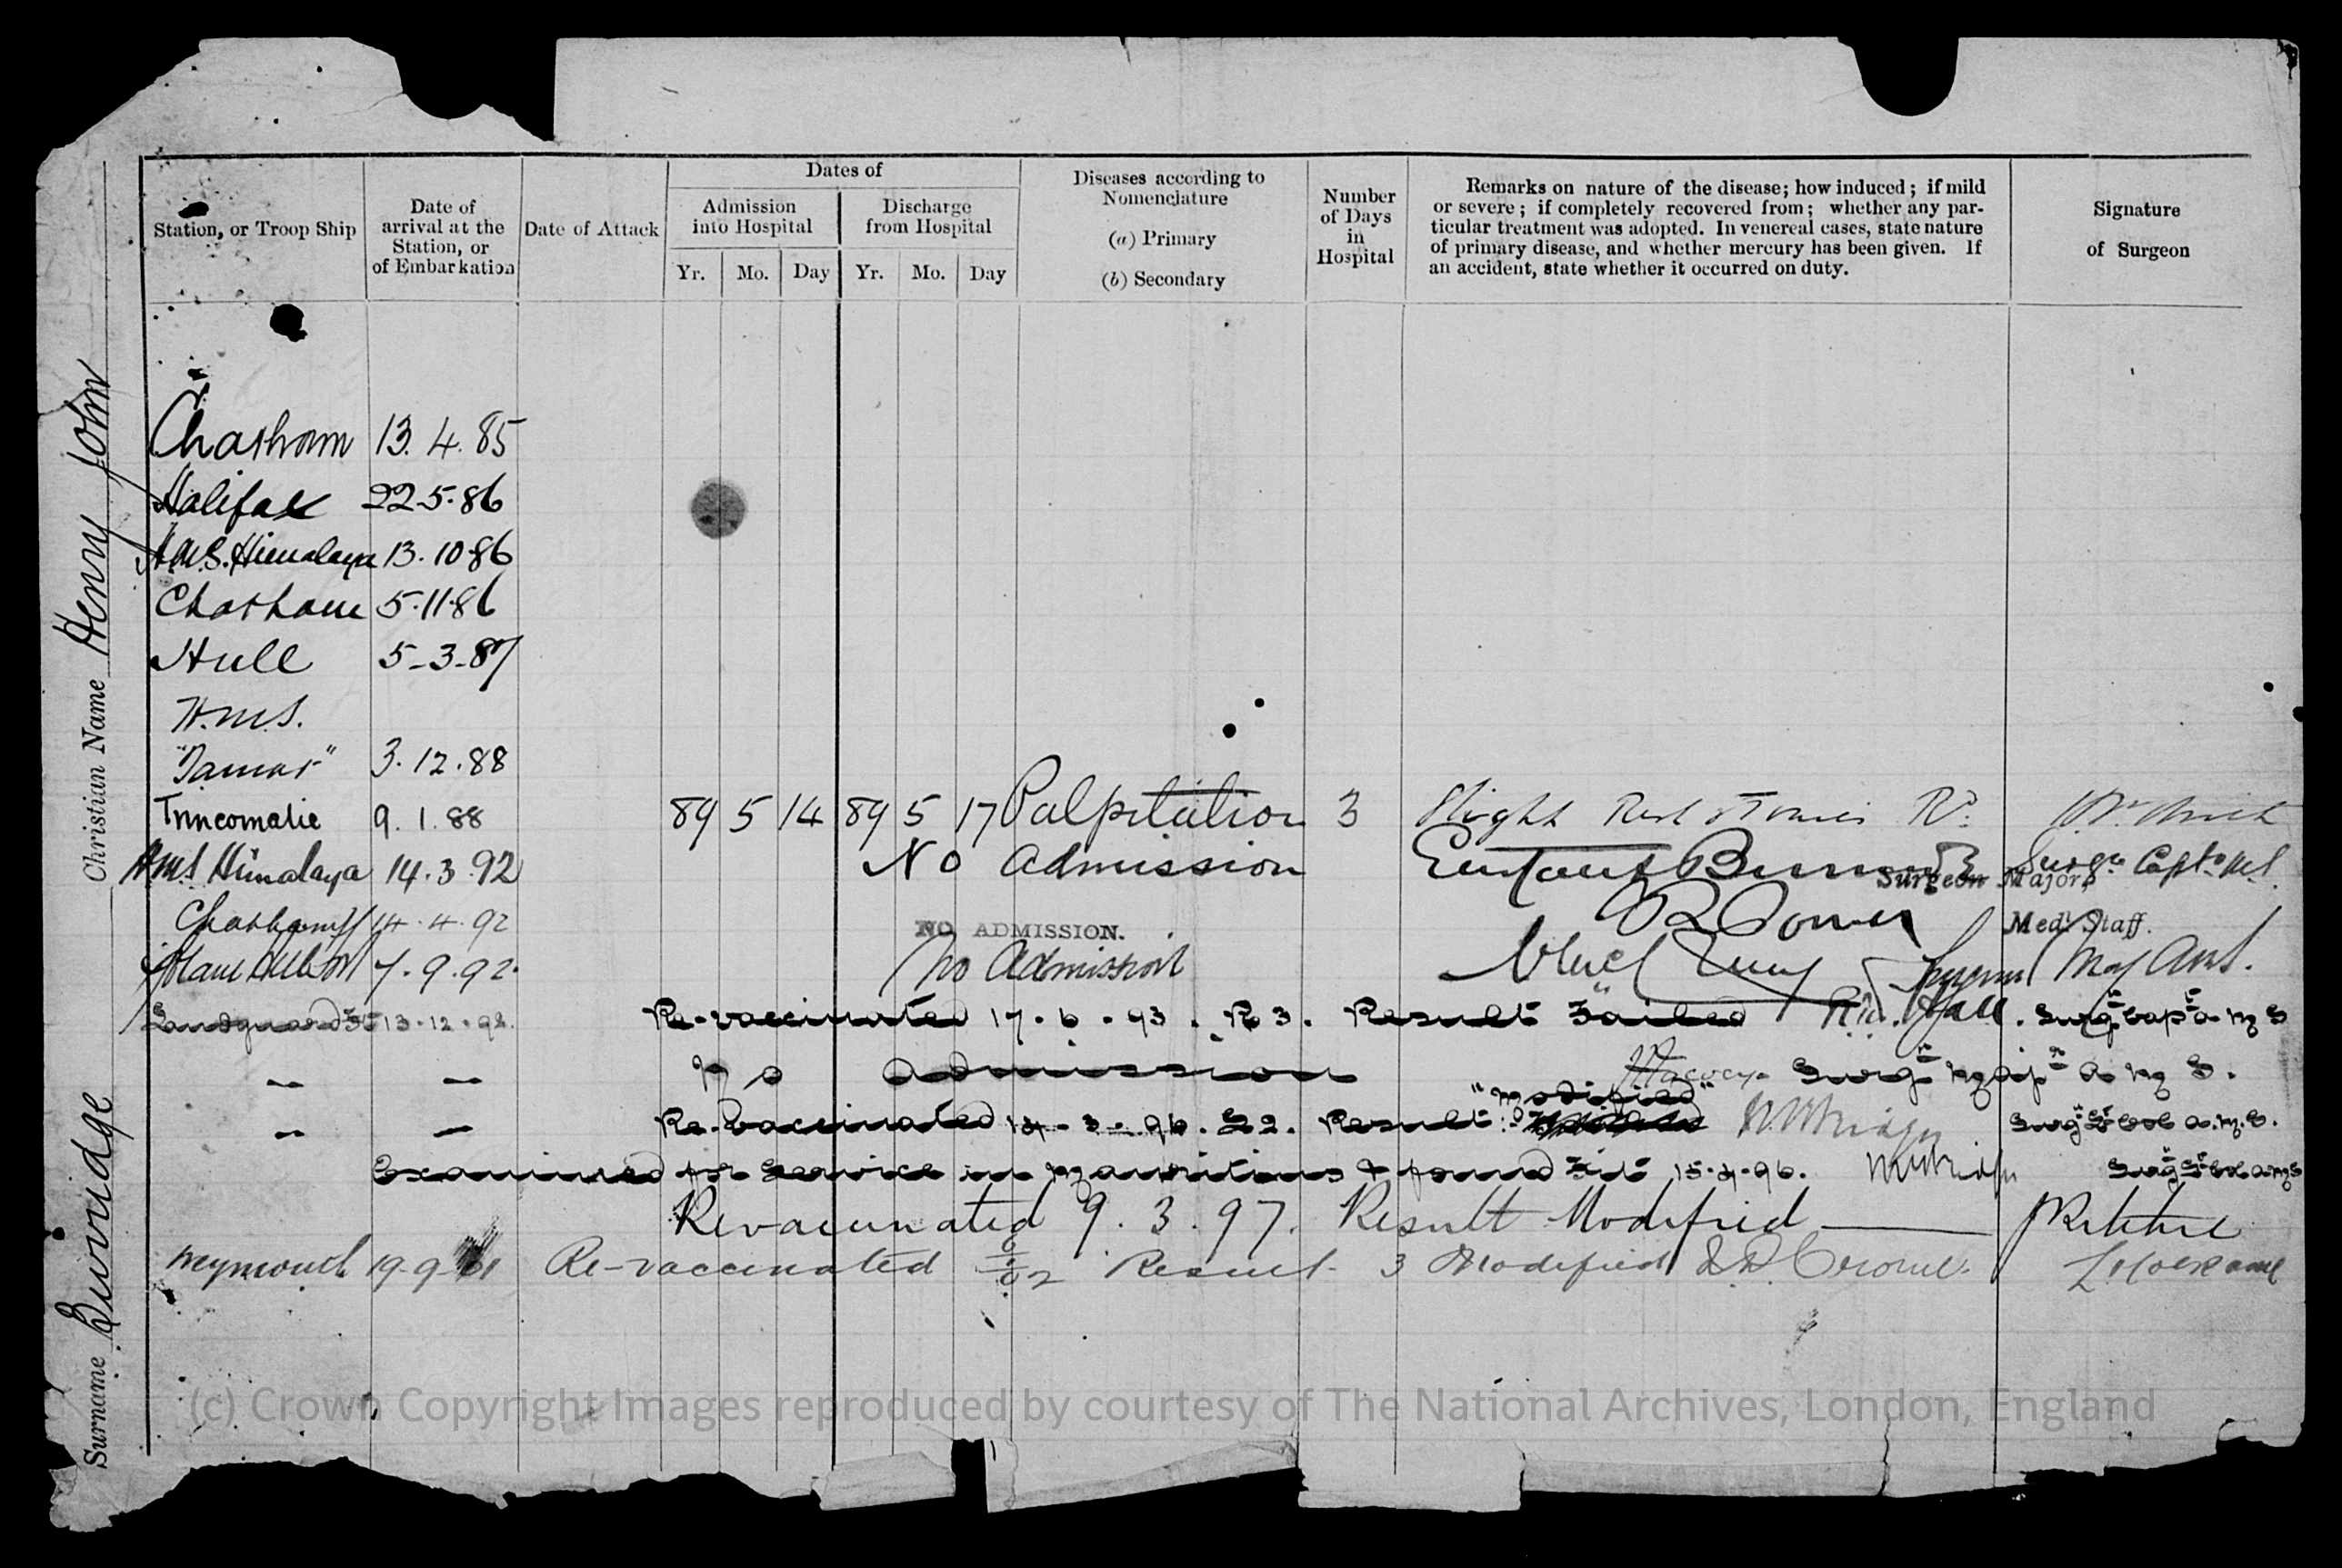 Christian Name Henry John
Surname
Station, or Troop Ship
Date of
arrival at the
Station, or
of Embarkation
Date of Attack
Dates of
Admission
into Hospital
Yr. Mo. Day
Discharge
from Hospital
Yr. Mo. Day
Diseases according to
Nomenclature
(a) Primary
(b) Secondary
Number
of Days
in
Hospital
Remarks on nature of the disease; how induced; if mild
or severe; if completely recovered from; whether any par-
ticular treatment was adopted. In venereal cases, state nature
of primary disease, and whether mercury has been given. If
an accident, state whether it occurred on duty.
Signature
of Surgeon
Chatham 13. 4. 85
Halifax 22.5.86
H.M.S. Himalaya 13.10.86
Chatham 5.11.86
Hull 5-3-87
H.M.S.
"Tamar" 3.12.88
Trincomalie 9.1.88 89 5 14 89 5 17 Palpitation 3 Slight
HMS Himalaya 14.3.92 No admission Surgn Capt. MS.
Surgeon Major
Chatham 14.4.92 NO ADMISSION. Med. Staff.
7.9.92. No Admission
Landguard Ft 13.12.92. Re-vaccinated 17.6.93. R3. Result Failed Hall. Surgn Capt A M S
" " No admission Surgn Major A M S.
"modified"
" " Re-vaccinated 14-3-96. S2. Result: Surg Lt Col A.M.S.
Examined for Service in Mauritius & found Fit 15-4-96. Surg Lt Col A M S
Revaccinated 9.3.97. Result Modified Ritchie
Weymouth 19-9-01 Re-vaccinated Result 3 Modified
(c) Crown Copyright Images reproduced by courtesy of The National Archives, London, England